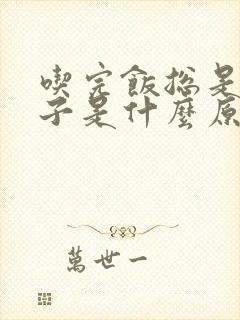 喫完飯總是
子是什麼原
萬世一